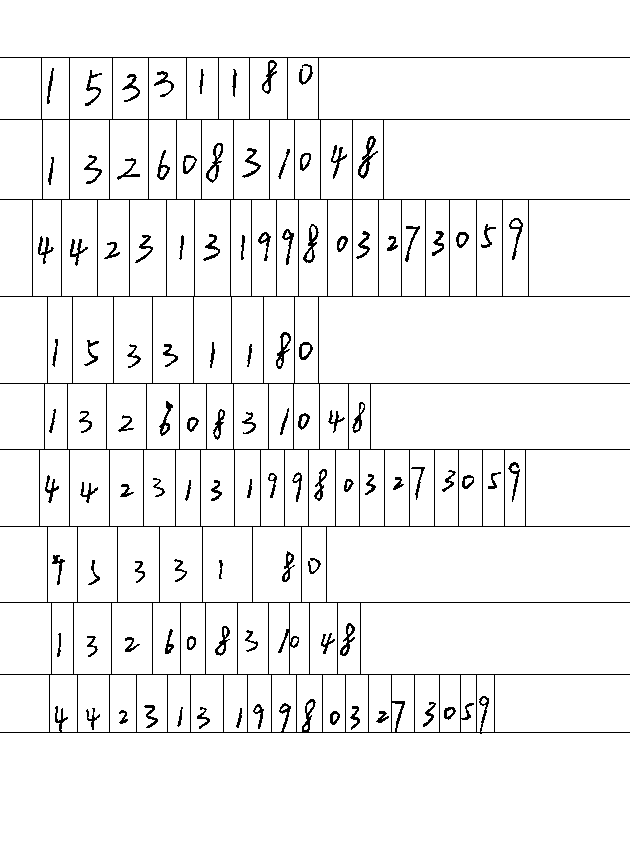 15331180
13260831048
442313199803273059
15331180
13260831048
442313199803273059
5331 80
13260831048
442313199803273059